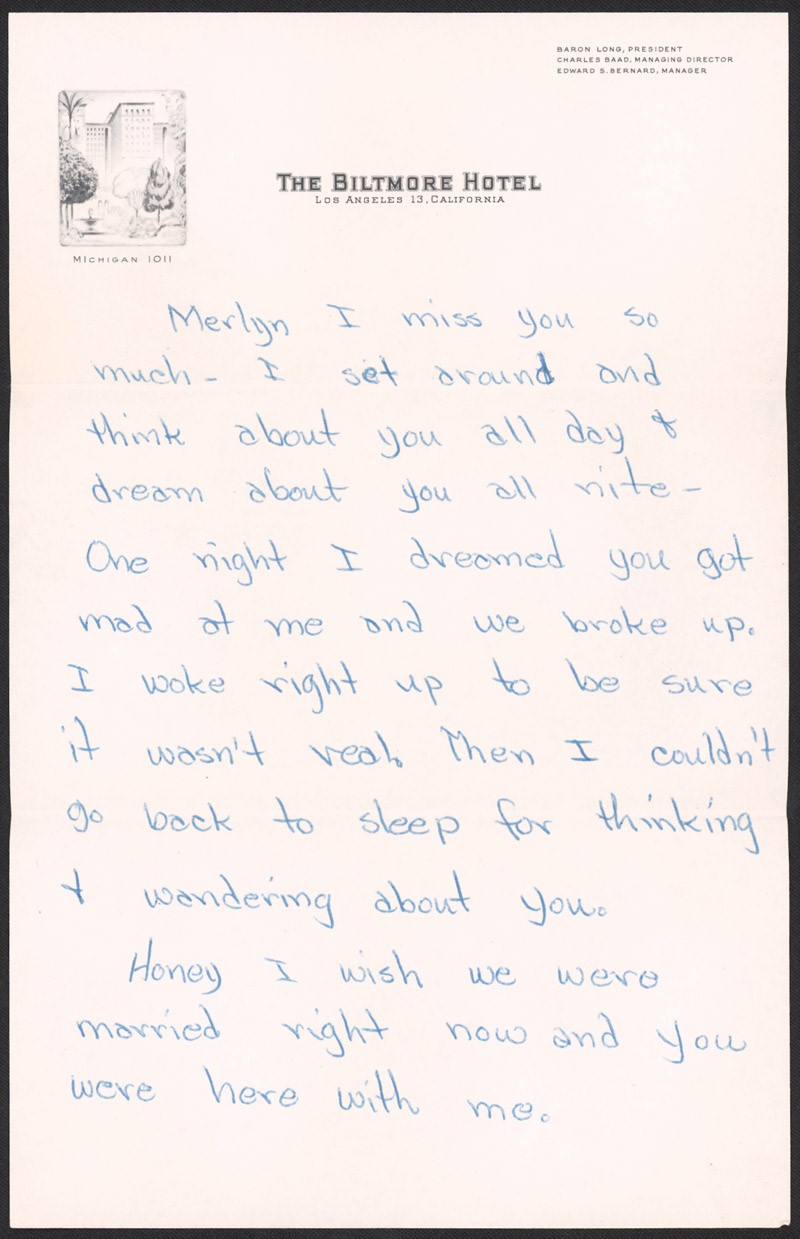 BARON LONG, PRESIDENT
CHARLES BAAD, MANAGING DIRECTOR
EDWARD S. BERNARD, MANAGER
THE BILTMORE HOTEL
LOS ANGELES 13, CALIFORNIA
MICHIGAN 1011
Merlyn I miss you so
much - I set around and
think about you all day &
dream about you all nite -
One night I dreamed you got
mad at me and we broke up.
I woke right up to be sure
it wasn't real. Then I couldn't
go back to sleep for thinking
& wandering about you.
Honey I wish we were
married right now and you
were here with me.